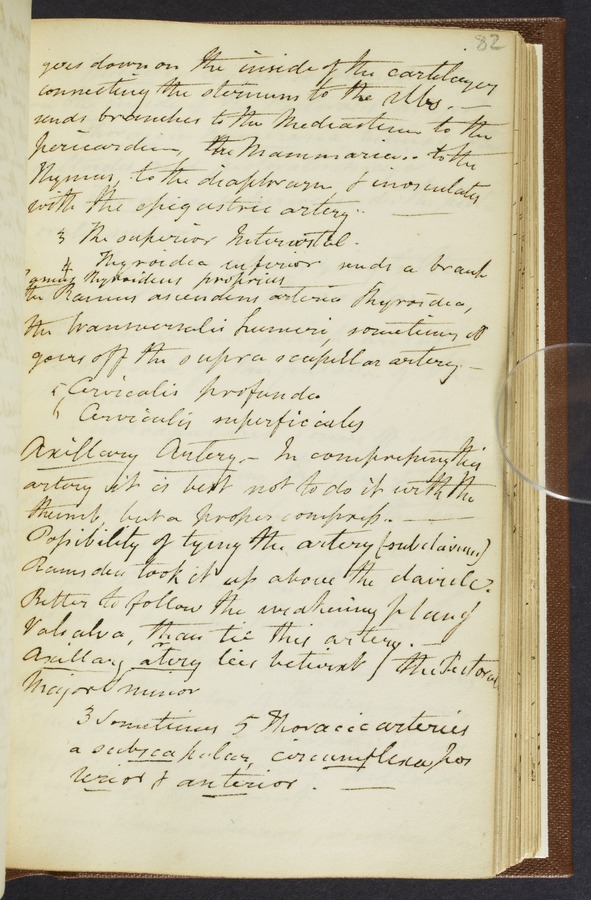 82
goes down on the inside of the cartilages
connecting the sternum to the ribs. —
sends branches to the Mediastinum to the
pericardium, the Mammaries. to the
Thymus, to the diaphragm, & inosculates
with the epigastric artery. —
3 The superior Intercostal.
4 Thyroidea inferior sends a branch
Ramus Thyroideus proprius
the Ramus ascendens arteria Thyroidea,
the transversalis humeri, sometimes it
gives off the supra scapullar artery —
5 Cervicalis profunda
6 Cervicalis superficiales
Axillary Artery. — In compressing this
artery it is best not to do it with the
thumb, but a proper compress. —
Possibility of tying the artery (subclavian)
Ramsden took it up above the clavicle.
Better to follow the weakening plan of
Valsalva, than tie this artery. —
Axillary artery lies betwixt / the Pectoral
Major minor
3 Sometimes 5 Thoracic arteries
a subscapular, circumflexa pos
terior & anterior. —